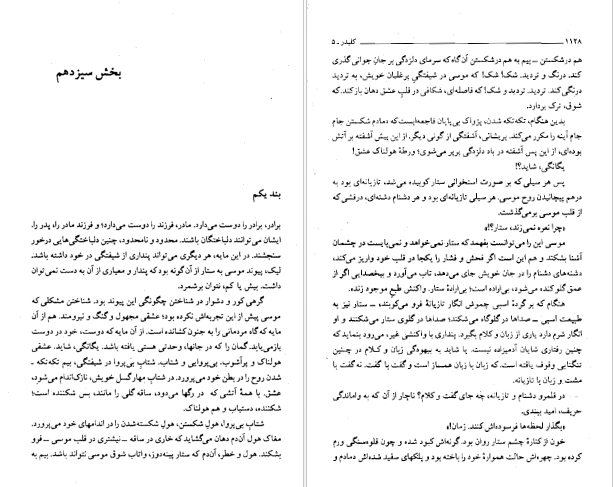 بخش سیزدهم
بند یکم
برادر، برادر را دوست می‌دارد. مادر، فرزند را دوست می‌دارد؛ و فرزند مادر را، پدر را.
ایشان می‌توانند دلباختگان باشند. محدود و نامحدود، چنین دلباختگی‌هایی درخور
سنجشند. در این مایه، هر دیگری می‌تواند پنداری از شیفتگی در خود داشته باشد.
لیک، پیوند موسی به ستار از آن‌گونه بود که پندار و معیاری از آن به دست نمی‌توان
داشت. بیش یا کم، نتوان برشمرد.
گرهی کور و دشوار در شناختن چگونگی این پیوند بود. شناختن مشکلی که
موسی پیش از این تجربه‌اش نکرده بود؛ عشقی مجهول و گنگ و نیرومند. هم از آن
مایه که گاه مردمانی را به جنون کشانده است. از آن مایه که دوست، خود در دوست
بازمی‌یابد. گمان را که در جانها، وحدتی هستی یافته باشد. یگانگی، شاید. عشقی
هولناک و پرآشوب. بی‌پروایی و شتاب. شتابِ بی‌پروا در شیفتگی، بیم تکه‌تکه
شدن روح را در بطن خود می‌پرورد. در شتابِ مهارگسل خویش، نازک‌اندام می‌شود،
عشق. با همهٔ آتشی که در رگها می‌دود، ساقه گلی را مانند، بس شکننده است؛
شکننده، دستیاب و هم هولناک.
شتابِ بی‌پروا، هولِ شکستن، هولِ شکسته‌شدن را در اندامهای خود می‌پرورد.
مغاک هول آن‌دم دهان می‌گشاید که خاری در ساقه ــ نیشتری در قلب موسی ــ فرو
بشکند. هول و خطر، آن‌دم که ستار پینه‌دوز، واتاب شوق موسی نتواند باشد. بیم به
۱۱۲۸ کلیدر ـ ۵
هم درشکستن ــ بیم به هم درشکستن آن‌گاه که سرمای دلزدگی بر جان جوانی گذری
کند. درنگ و تردید. شک! شک! که موسی در شیفتگیِ پرغلیان خویش، به تردید
درنگی کند. تردید. تردید و شک! که فاصله‌ای، شکافی در قلبِ عشق دهان باز کند. که
شوق، ترک بردارد.
بدین هنگام، تکه‌تکه شدن، پژواک بی‌پایان فاجعه‌ایست که دمادم شکستن جام
جام آینه را مکرر می‌کند. پریشانی، آشفتگی از گونی دیگر. از این پیش آشفته بر آتش
بوده‌ای، از این پس آشفته در باد دلزدگی پرپر می‌شوی؛ ورطهٔ هولناک عشق!
یگانگی، شاید؟!
پس هر سیلی که بر صورت استخوانی ستار کوبیده می‌شد، تازیانه‌ای بود به
درهم پیچانیدن روح موسی. هر سیلی تازیانه‌ای بود و هر دشنام دشنه‌ای، درفشی که
از قلب موسی برمی‌گذشت.
«چرا نعره نمی‌زند، ستار؟!»
موسی این را می‌توانست بفهمد که ستار نمی‌خواهد و نمی‌بایست در چشمان
آشنا بشکند و هم این است اگر فحش و فشار را یکجا در قلب خود واریز می‌کند،
دشنه‌های دشنام را در جان خویش جای می‌دهد، تاب می‌آورد و بیخصدایی اگر از
عمق گلو کنده می‌شود، بی‌اراده است؛ بی‌ارادهٔ ستار. واکنش طبع موجود زنده.
هنگام که بر گردهٔ اسبی چموش انگار تازیانهٔ فرو می‌کوبند، ــ ستار نیز به
طبیعت اسبی ــ صداها در گلوگاه می‌شکند؛ صداها در گلوی ستار می‌شکنند و او
انگار شرم دارد یاری از زبان و کلام بگیرد. پنداری با واکنشی غیر، می‌رود بنماید که
چنین رفتاری شایان آدمیزاده نیست. یا شاید به بیهودگی زبان و کلام در چنین
تنگنایی وقوف یافته است. که زبان با زبان همساز است و گفت با گفت. نه‌گفت با
مشت و زبان با تازیانه.
در قلمرو دشنام و تازیانه، چه جای گفت و کلام؟ ناچار از آن که به واماندگی
حریف، امید ببندی.
«بگذار لحظه‌ها فرسوده‌اش کنند. زمان!»
خون از کنارهٔ چشم ستار روان بود. گونه‌اش کبود شده و چون قلوه‌سنگی ورم
کرده بود. چهره‌اش حالت همواره‌ٔ خود را باخته بود و پلکهای سفید شده‌اش دمادم و